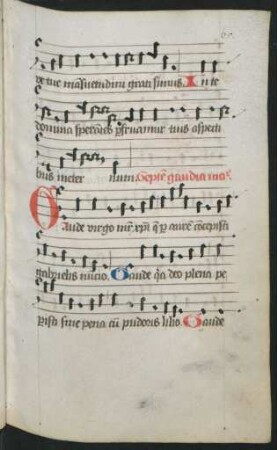 pe tue mansuetudini grati simus. In te
domina sperantes perfruamur tuis aspecti
bus in eter num. Septem gaudia ma
Gaude virgo mr xpi q p aurem concepisti
gabrielis nuncio. Gaude qa deo plena pe
peristi sine pena cu pudoris lilio Gaude